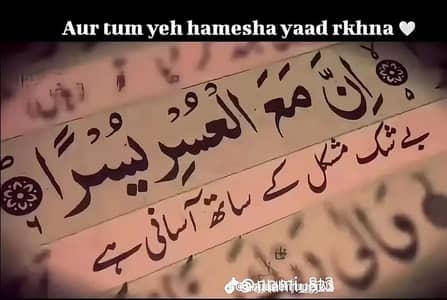 Aur tum yeh hamesha yaad rkhna 🤍
اِنَّ مَعَ الْعُسْرِ يُسْرًا
۶
بے شک مشکل کے ساتھ آسانی ہے